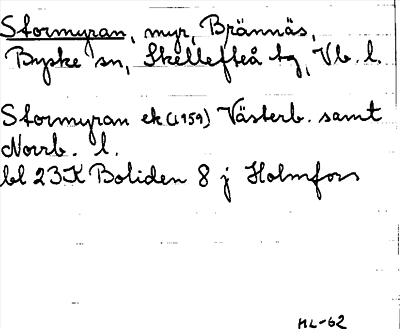 Stormyran, myr, Brännäs,
Byske sn, Skellefteå tg, Vb. l.
Stormyran ek (1959) Västerb. samt
Norrb. l.
bl 23K Boliden 8 j Holmfors
ML-62